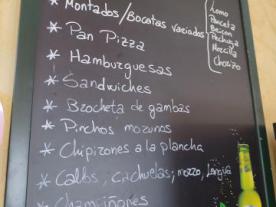 * Montados/Bocatas variados
Lomo
Panceta
Beicon
Pechuga
Morcilla
Chorizo
* Pan Pizza
* Hamburguesas
* Sandwiches
* Brocheta de gambas
* Pinchos morunos
* Chipirones a la plancha
* Callos, Cachuelas, morro, Lengua
* Champiñones